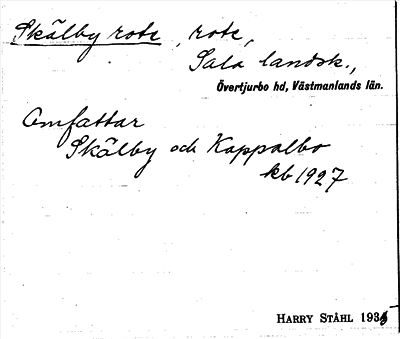 Skälby rote, rote,
Sala landsk.,
Övertjurbo hd, Västmanlands län.
Omfattar
Skälby och Kappalbo
kb 1927
HARRY STÅHL 193